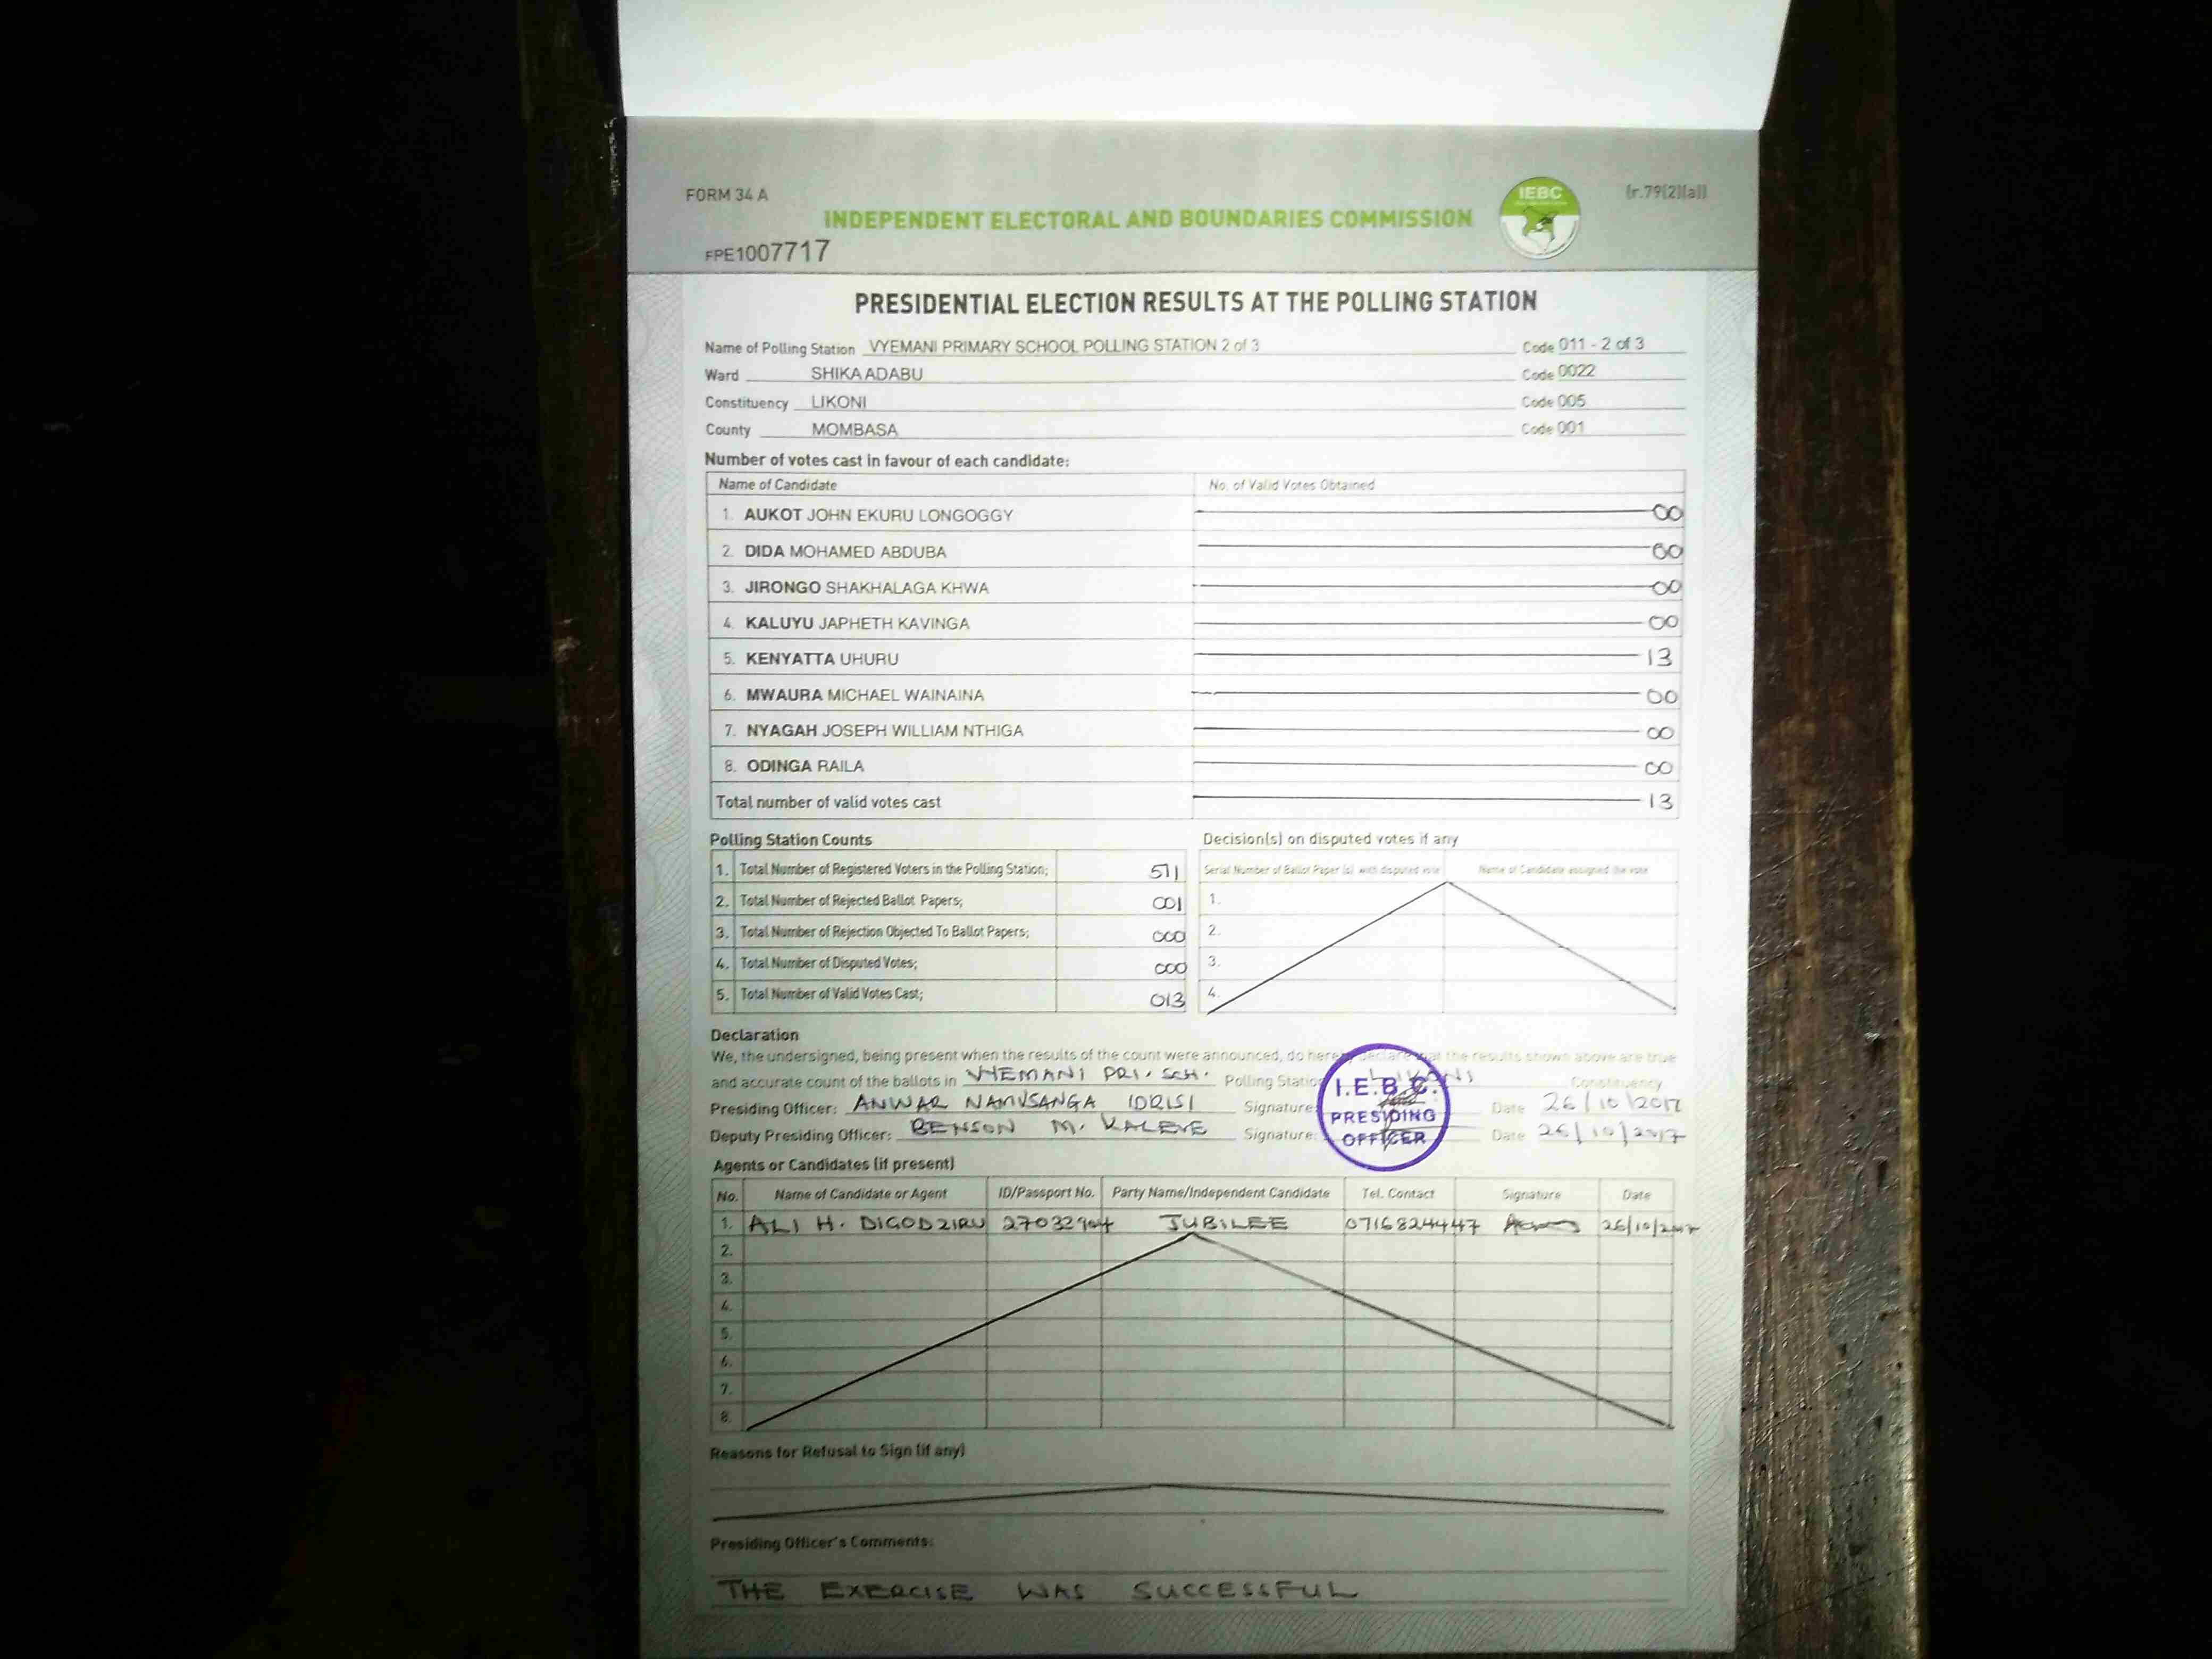 FORM 34 A
IEBC
(r.79(2)(a))
INDEPENDENT ELECTORAL AND BOUNDARIES COMMISSION
FPE1007717
PRESIDENTIAL ELECTION RESULTS AT THE POLLING STATION
Name of Polling Station VYEMANI PRIMARY SCHOOL POLLING STATION 2 of 3 Code 011 - 2 of 3
Ward SHIKA ADABU Code 0022
Constituency LIKONI Code 005
County MOMBASA Code 001
Number of votes cast in favour of each candidate:
Name of Candidate No. of Valid Votes Obtained
1. AUKOT JOHN EKURU LONGOGGY 00
2. DIDA MOHAMED ABDUBA 00
3. JIRONGO SHAKHALAGA KHWA 00
4. KALUYU JAPHETH KAVINGA 00
5. KENYATTA UHURU 13
6. MWAURA MICHAEL WAINAINA 00
7. NYAGAH JOSEPH WILLIAM NTHIGA 00
8. ODINGA RAILA 00
Total number of valid votes cast 13
Polling Station Counts Decision(s) on disputed votes if any
1. Total Number of Registered Voters in the Polling Station; 511 Serial Number of Ballot Paper (s) with disputed vote Name of Candidate assigned the vote
2. Total Number of Rejected Ballot Papers; 001 1.
3. Total Number of Rejection Objected To Ballot Papers; 000 2.
4. Total Number of Disputed Votes; 000 3.
5. Total Number of Valid Votes Cast; 013 4.
Declaration
We, the undersigned, being present when the results of the count were announced, do hereby declare that the results shown above are true
and accurate count of the ballots in VYEMANI PRI. SCH. Polling Station LIKONI Constituency
Presiding Officer: ANWAR NAMUSANGA IDRISI Signature: Date 26/10/2017
Deputy Presiding Officer: BENSON M. Signature: Date 26/10/2017
I.E.B.C.
PRESIDING
OFFICER
Agents or Candidates (if present)
No. Name of Candidate or Agent ID/Passport No. Party Name/Independent Candidate Tel. Contact Signature Date
1. ALI H. DIGODZIRU 27032904 JUBILEE 0716824447 26/10/2017
2.
3.
4.
5.
6.
7.
8.
Reasons for Refusal to Sign (if any)
Presiding Officer's Comments:
THE EXERCISE WAS SUCCESSFUL